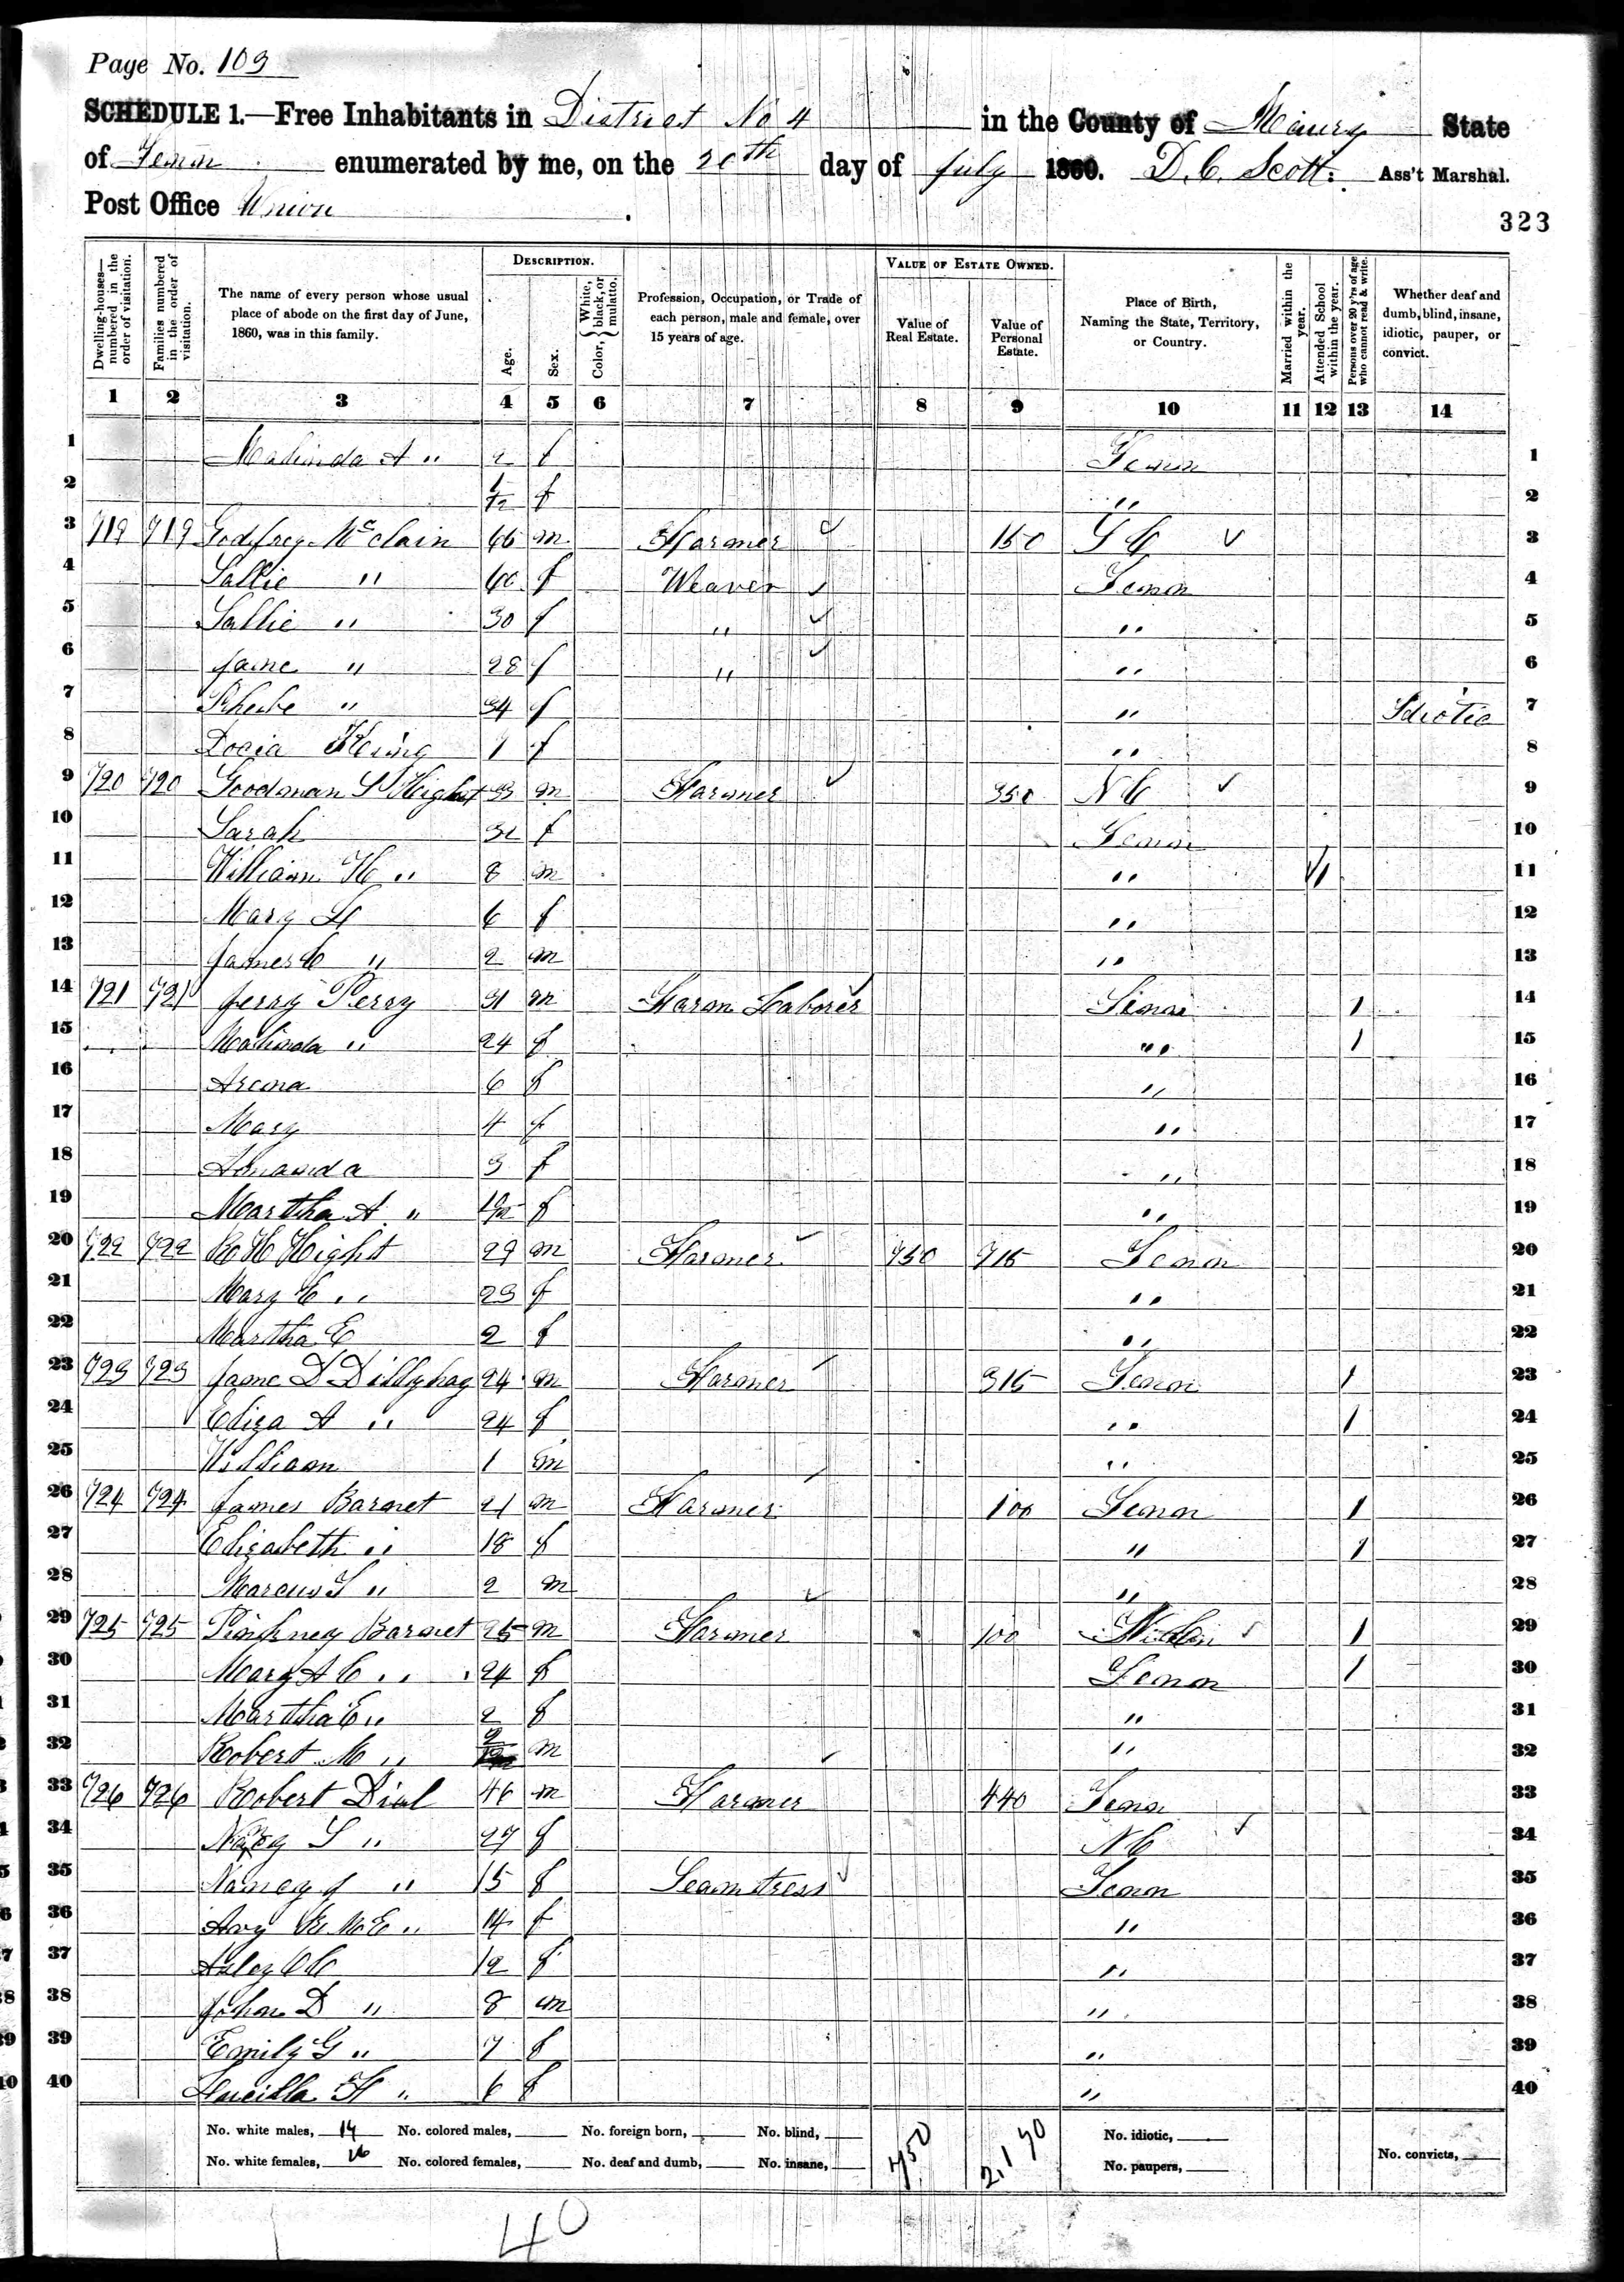 Page No. 103
SCHEDULE 1.—Free Inhabitants in District No 4 in the County of Maury State
of Tenn enumerated by me, on the 20th day of July 1860. D. C. Scott. Ass't Marshal.
Post Office Union
323
Dwelling-houses—numbered in the order of visitation. Families numbered in the order of visitation. The name of every person whose usual place of abode on the first day of June, 1860, was in this family. DESCRIPTION. Age. Sex. Color, { White, black, or mulatto. Profession, Occupation, or Trade of each person, male and female, over 15 years of age. VALUE OF ESTATE OWNED. Value of Real Estate. Value of Personal Estate. Place of Birth, Naming the State, Territory, or Country. Married within the year. Attended School within the year. Persons over 20 y'rs of age who cannot read & write. Whether deaf and dumb, blind, insane, idiotic, pauper, or convict.
1 2 3 4 5 6 7 8 9 10 11 12 13 14
1 Malinda A " 2 f Tenn 1
2 1/12 f " 2
3 719 719 Godfrey McClain 66 m Farmer 150 3
4 Sallie " 60 f Weaver Tenn 4
5 Sallie " 30 f " " 5
6 Jane " 28 f " " 6
7 Phebe " 34 f " Idiotic 7
8 Docia 1 f " 8
9 720 720 Goodman Hight 33 m Farmer 350 N C 9
10 Sarah f Tenn 10
11 William H " 8 m " 1 11
12 Mary 6 f " 12
13 James C " 2 m " 13
14 721 721 Jerry Perry 31 m Farm Laborer Tenn 1 14
15 Malinda " 24 f " 1 15
16 6 f " 16
17 Mary 4 f " 17
18 Amanda 3 f " 18
19 Martha A " f " 19
20 722 722 Hight 29 m Farmer 750 715 Tenn 20
21 Mary E " 23 f " 21
22 Martha E 2 f " 22
23 723 723 Jame D Dillyhay 24 m Farmer 315 Tenn 1 23
24 Eliza A " 24 f " 1 24
25 William 1 m " 25
26 724 724 James Barnet 21 m Farmer 100 Tenn 1 26
27 Elizabeth " 18 f " 1 27
28 Marcus S " 2 m " 28
29 725 725 Pinkney Barnet 25 m Farmer 100 1 29
30 Mary A C " 24 f Tenn 1 30
31 Martha E " 2 f " 31
32 Robert M " m " 32
33 726 726 Robert Dial 46 m Farmer 440 Tenn 33
34 S " 27 f N C 34
35 Nancy J " 15 f Seamstress Tenn 35
36 " 14 f " 36
37 12 f " 37
38 John D " 8 m " 38
39 Emily G " 7 f " 39
40 " 6 f " 40
No. white males, 14 No. colored males, No. foreign born, No. blind, 750 2,170 No. idiotic,
No. white females, 26 No. colored females, No. deaf and dumb, No. insane, No. paupers, No. convicts,
40